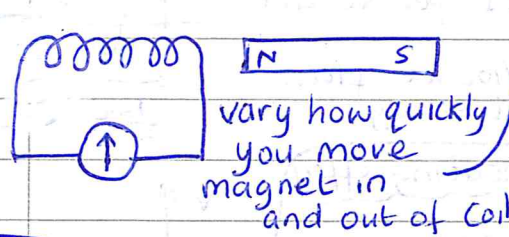 N S
vary how quickly
you move
magnet in
and out of coil